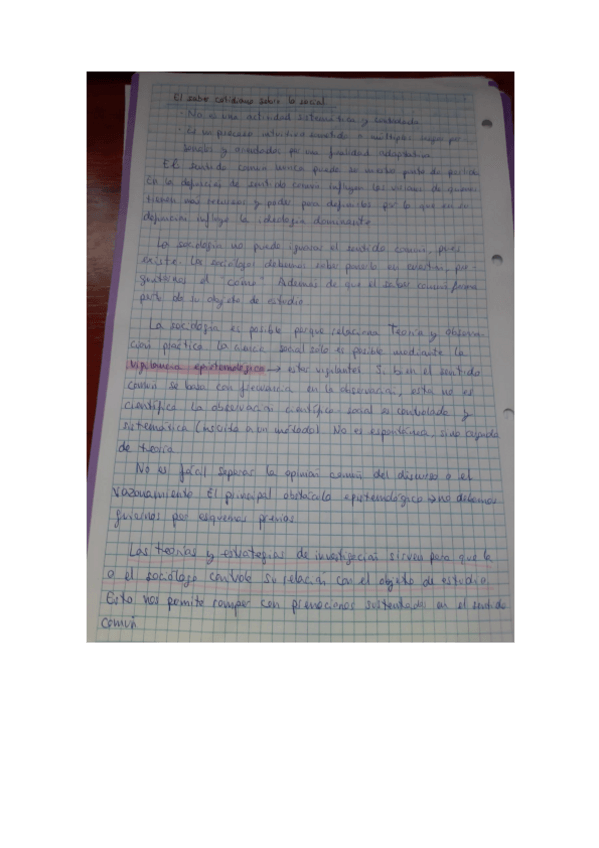 El saber cotidiano sobre lo social
· No es una actividad sistemática y controlada
· Es un proceso intuitivo sometido a múltiples
y por una finalidad adaptativa
El sentido común nunca puede ser nuestro punto de partida
En la definición de sentido común influyen los valores de quienes
tienen más recursos y poder para definirlos por lo que en su
definición influye la ideología dominante
La sociología no puede ignorar el sentido común, pues
existe. Los sociólogo debemos saber ponerlo en cuestión, pre-
guntarnos el "como". Además de que el saber común forma
parte de su objeto de estudio
La sociología es posible porque relaciona Teoría y observa-
ción práctica. La ciencia social sólo es posible mediante la
vigilancia epistemológica → estar vigilantes Si bien el sentido
común se basa con frecuencia en la observación, esta no es
científica. La observación científica social es controlada y
sistemática (inscrita a un método). No es espontánea, sino cargada
de teoría
No es fácil separar la opinión común del discurso o el
razonamiento El principal obstáculo epistemológico → no debemos
guiarnos por esquemas previos
Las teorías y estrategias de investigación sirven para que la
o el sociólogo controle su relación con el objeto de estudio
Esto nos permite romper con prenociones sustentadas en el sentido
común